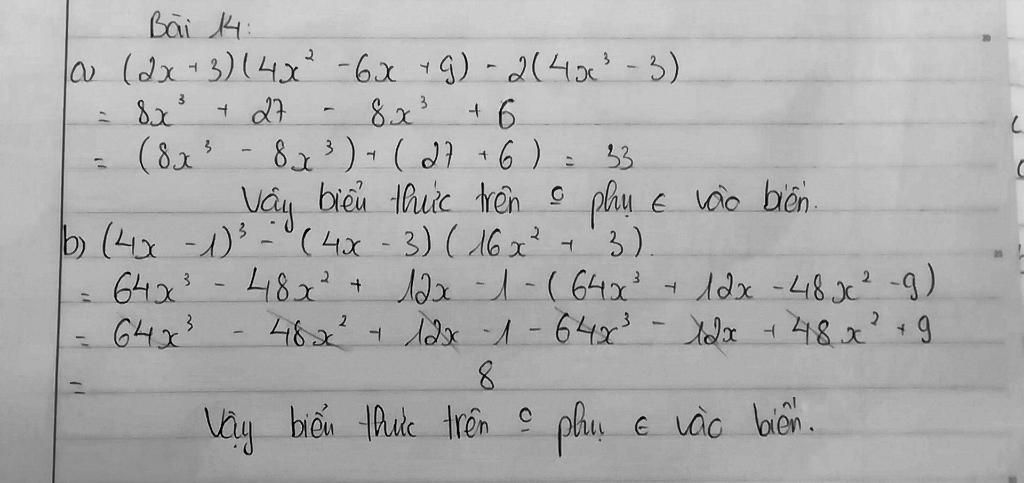 Bài 14:
a) (2x + 3)(4x² - 6x + 9) - 2(4x³ - 3)
= 8x³ + 27 - 8x³ + 6
= (8x³ - 8x³) + (27 + 6) = 33
Vậy biểu thức trên o phụ ∈ vào biến.
b) (4x - 1)³ - (4x - 3)(16x² + 3).
= 64x³ - 48x² + 12x - 1 - (64x³ + 12x - 48x² - 9)
= 64x³ - 48x² + 12x - 1 - 64x³ - 12x + 48x² + 9
= 8
Vậy biểu thức trên o phụ ∈ vào biến.